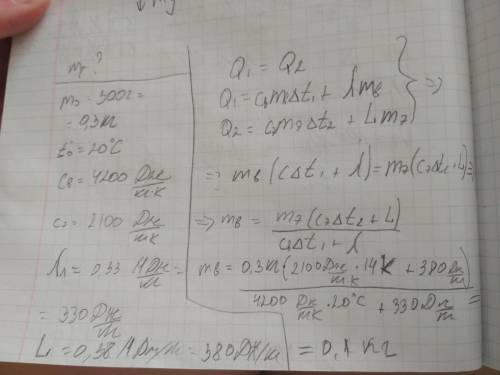 m₂ ?
mэ = 300г =
= 0,3 кг
t₀° = 20°C
Cв = 4200 Дж/кг·К
c₂ = 2100 Дж/кг·К
λ₁ = 0,33 МДж/кг =
= 330 Дж/кг
L₁ = 0,38 МДж/кг = 380 Дж/кг
Q₁ = Q₂
Q₁ = c₁mвΔt₁ + λmв
Q₂ = c₂mэΔt₂ + L₁mэ } ⇒
⇒ mв (cΔt₁ + λ) = mэ(c₂Δt₂ + L) ⇒
⇒ mв = mэ(c₂Δt₂ + L) / c₁Δt₁ + λ
mв = 0,3кг(2100 Дж/кг·К · 14К + 380 Дж/кг) / 4200 Дж/кг·К · 20°C + 330 Дж/кг =
= 0,1 кг